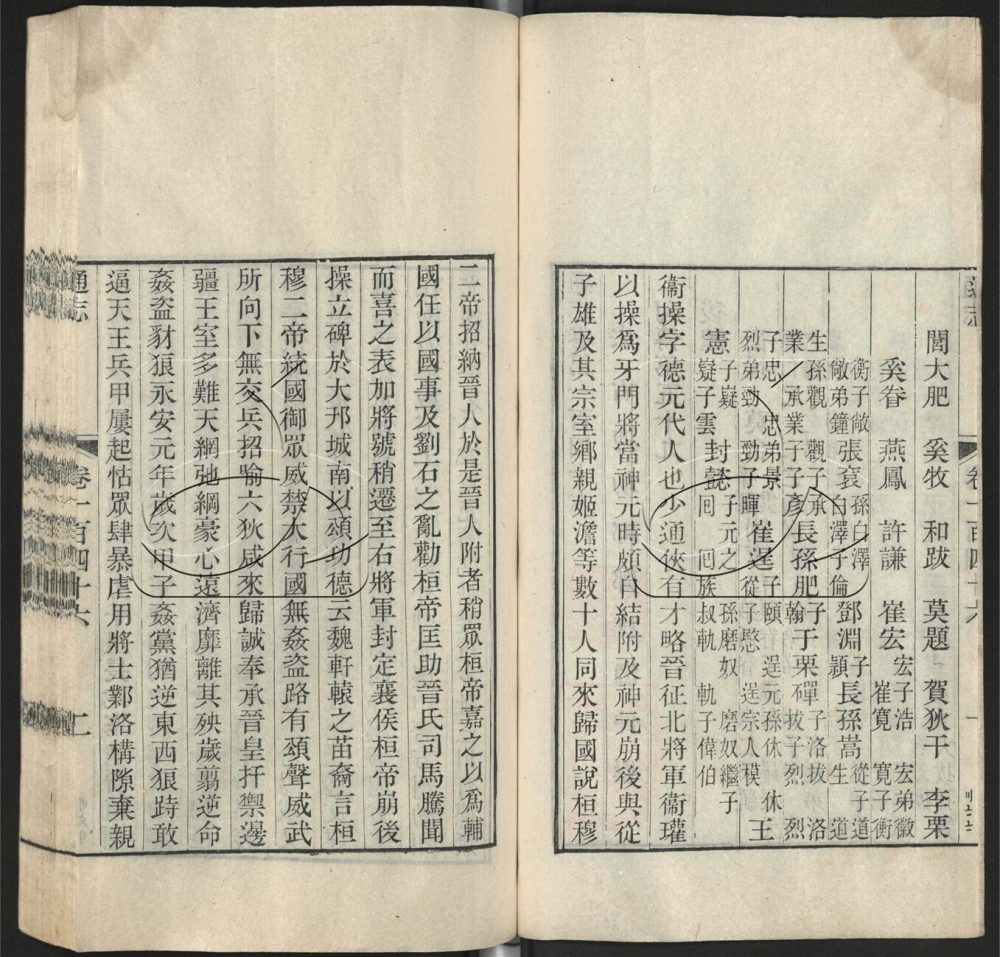 通志 卷一百四十六 一
閭大肥 奚牧 和跋 莫題 賀狄干 李栗
奚眷 燕鳳 許謙 崔宏 宏子浩 宏弟徽 崔寬 寬子衡
衡子敞 敞弟鐘 張袞 孫白澤 白澤子倫 鄧淵 子穎 長孫嵩 從子道生 道
生孫觀 觀子承業 承業子子彥 長孫肥 子翰 于栗磾 子洛拔 洛拔子烈 烈
子忠 忠弟景 烈弟勁 勁子暉 崔逞 子頤 逞元孫休 休從子愍 逞宗人模 王
憲 子嶷 嶷子雲 封懿 子元之 孫磨奴 磨奴繼子回 回族叔軌 軌子偉伯
衞操字德元代人也少通俠有才略晉征北將軍衞瓘
以操爲牙門將當神元時頗自結附及神元崩後與從
子雄及其宗室鄉親姬澹等數十人同來歸國說桓穆
二帝招納晉人於是晉人附者稍眾桓帝嘉之以爲輔
國任以國事及劉石之亂勸桓帝匡助晉氏司馬騰聞
而喜之表加將號稍遷至右將軍封定襄侯桓帝崩後
操立碑於大邗城南以頌功德云魏軒轅之苗裔言桓
穆二帝統國御眾威禁大行國無姦盜路有頌聲威武
所向下無交兵招喻六狄咸來歸誠奉承晉皇扞禦邊
疆王室多難天網弛綱豪心遠濟靡離其殃歲翦逆命
姦盜豺狼永安元年歲次甲子姦黨猶逆東西狼跱敢
逼天王兵甲屢起怙眾肆暴虐用將士鄴洛構隙棄親
通志 卷一百四十六 二